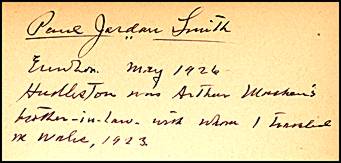 Paul Jordan Smith
Erewhon. May 1926
Hudleston was Arthur Machen's
brother-in-law. with whom I traveled
in Wales, 1923.